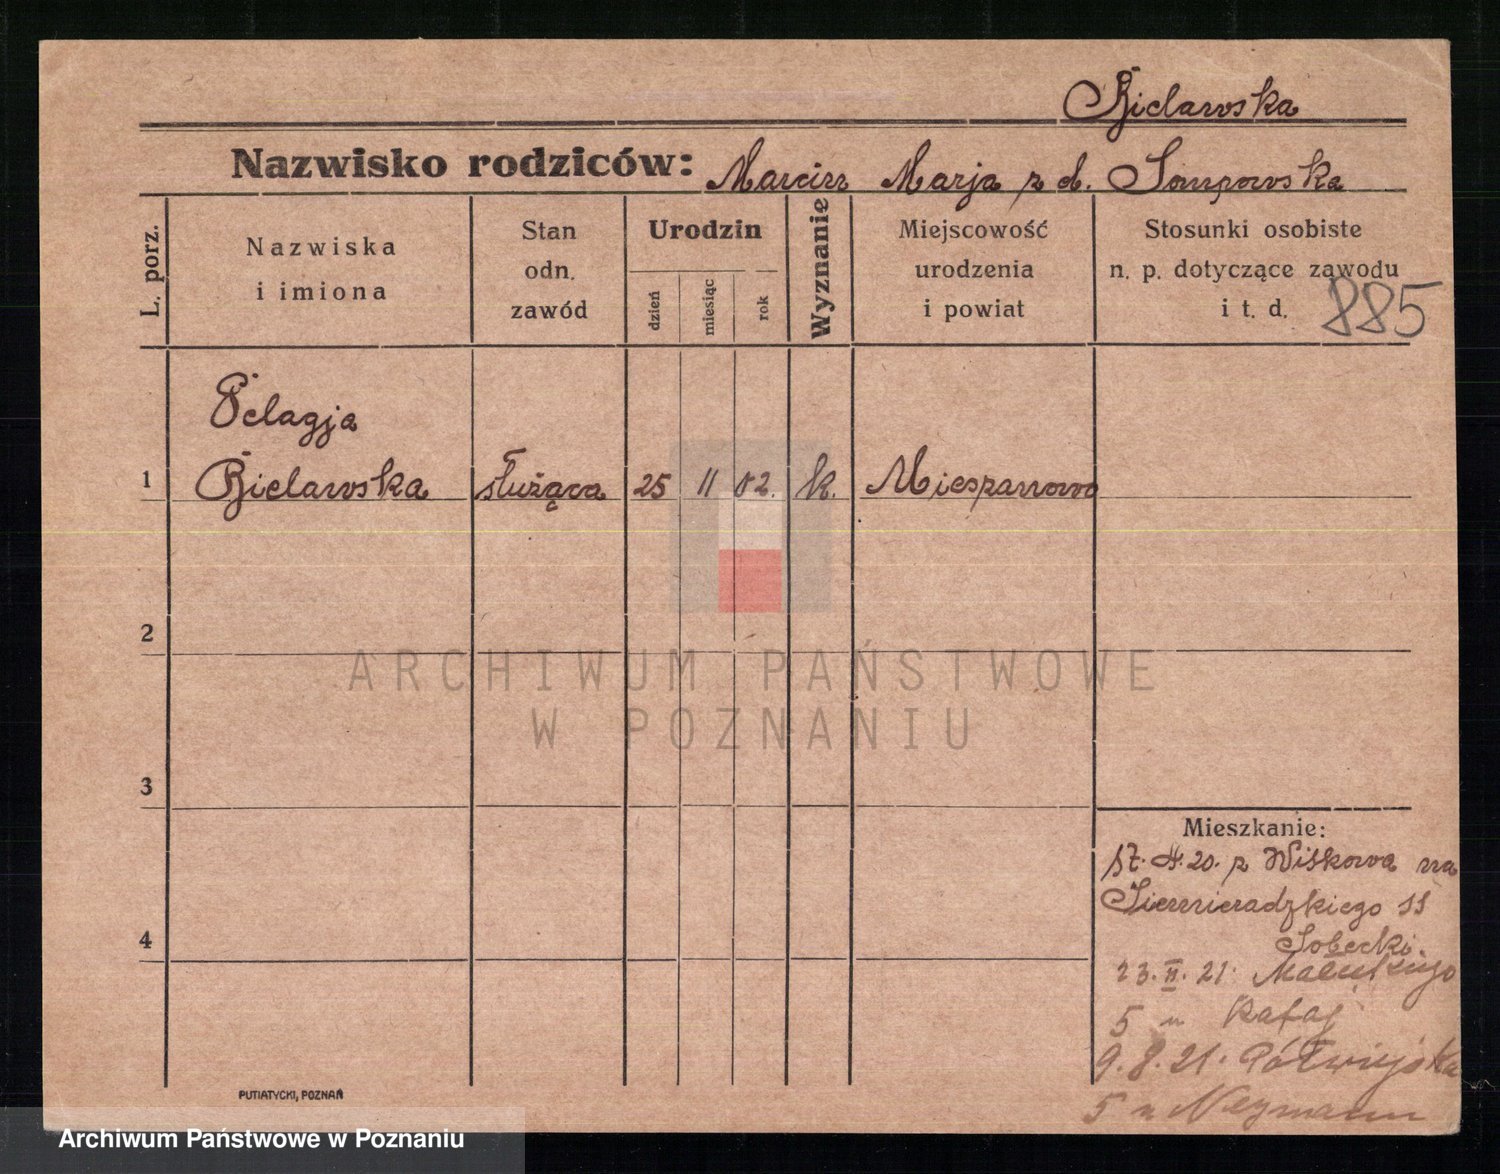 Bielawska
Nazwisko rodziców: Marcin Marja z d. Sompowska
L. porz.
Nazwiska i imiona
Stan odn. zawód
Urodzin
dzień
miesiąc
rok
Wyznanie
Miejscowość urodzenia i powiat
Stosunki osobiste n. p. dotyczące zawodu i t. d.
885
Pelagja
1 Bielawska służąca 25 11 02. k. Mieszanowo
2
ARCHIWUM PAŃSTWOWE
W POZNANIU
3
Mieszkanie:
4. 20. z Wiškowa na
Siemieradzkiego 11
4
Sobecki.
23. II. 21.
5 u Rataj
9. 8. 21. Półwiejska
5 u Neymann
PUTIATYCKI, POZNAŃ
Archiwum Państwowe w Poznaniu